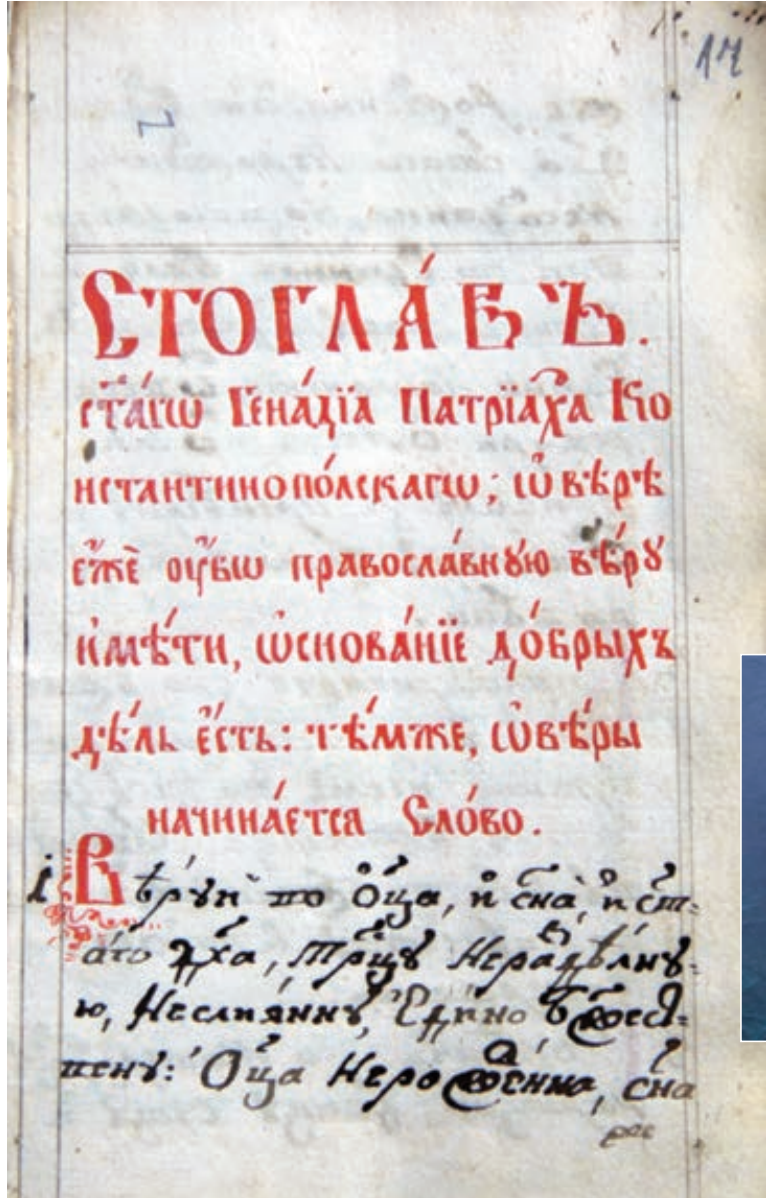 17
СТОГЛА́ВЪ.
ст҃а́гѡ Гена́дїа Патрїа́рха Ко
нстантинопо́лскагѡ; ѡ҆ вѣрѣ
є҆́же ᲂу҆́бѡ правосла́внꙋю вѣ́рꙋ
и҆мѣ́ти, ѡ҆снова́нїе до́брыхъ
дѣ́лъ є҆́сть: тѣ́мже, ѡ҆ вѣ́ры
начина́етсѧ Сло́во.
і Вѣ́рꙋй во Оц҃а, и҆ сн҃а, и҆ ст҃-
а́го дх҃а, Трⷪ҇цꙋ Нераздѣ́лнꙋ-
ю, Несли́ѧннꙋ, Єди́но бжⷭ҇е-
венꙋ: Оц҃а Нерожде́нна, сн҃а
рож